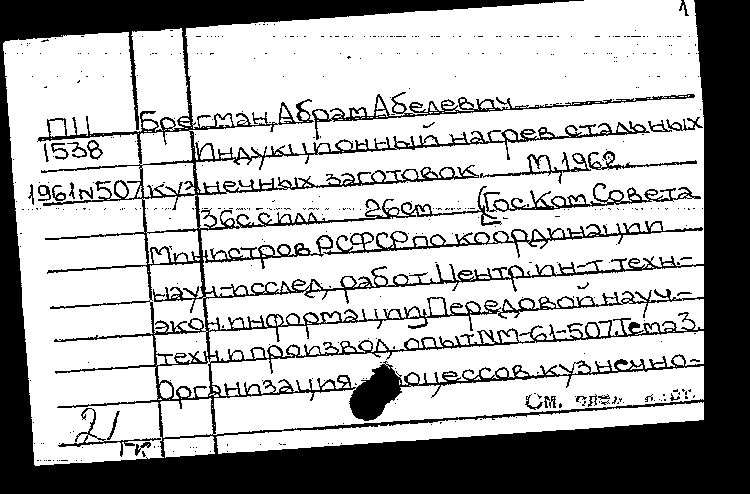 1
П11 Брегман, Абрам Абелевич
1538 Индукционный нагрев стальных
1961 N507 кузнечных заготовок. М., 1962.
36с. с илл. 26см (Гос. Ком. Совета
Министров РСФСР по координации
научн-исслед. работ. Центр. ин-т техн.-
экон. информации. Передовой науч.-
техн. и производ. опыт. NМ-61-507. Тема 3.
Организация процессов кузнечно-
21 См. след. карт.
ГК